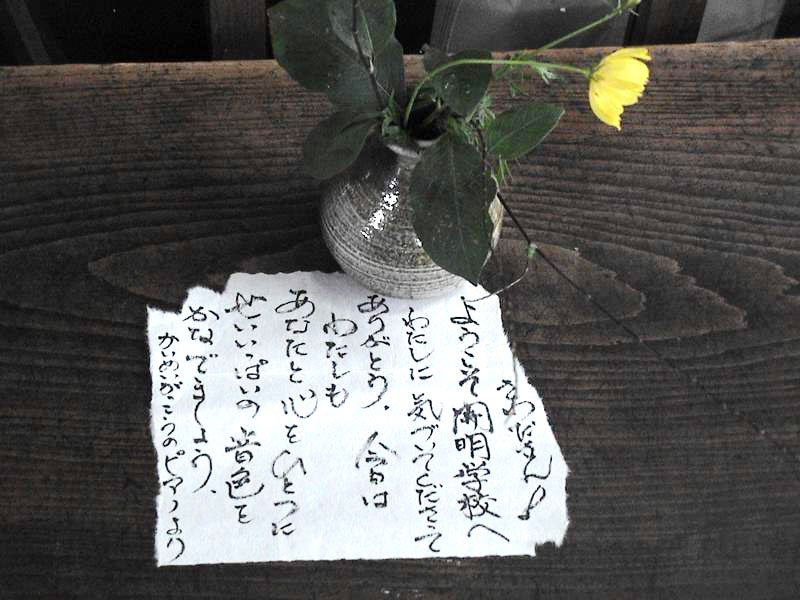 ようこそ開明学校へ
わたしに気づいてくださって
ありがとう、今日は
わたしも
あなたと心をひとつに
せいいっぱいの音色を
かなでましょう、
かいめいがっこうのピアノより